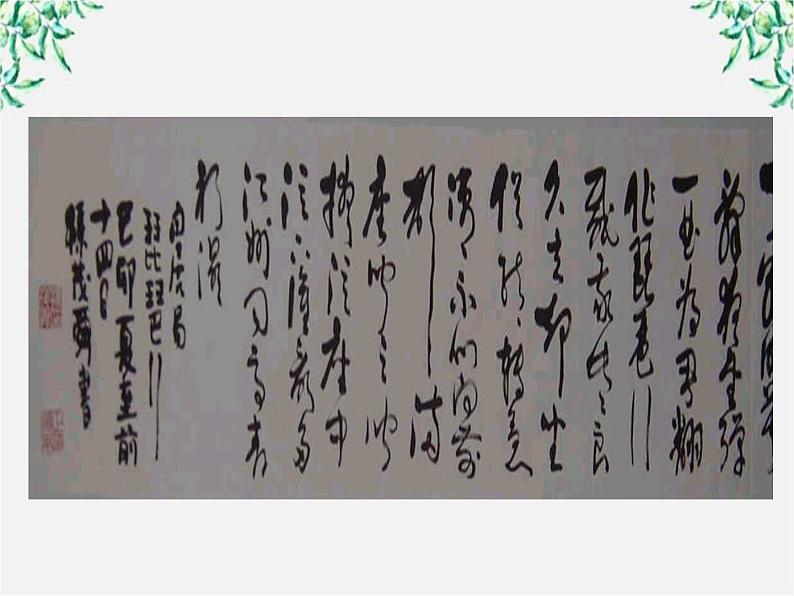 辞更坐弹
一曲为君翻
作琵琶行
感我此言良
久立却坐
促弦弦转急
凄凄不似向前
声满
座
掩泣座中
泣下谁最多
江州司马青
衫湿
白居易
琵琶行
己卯夏至前
十四日
书